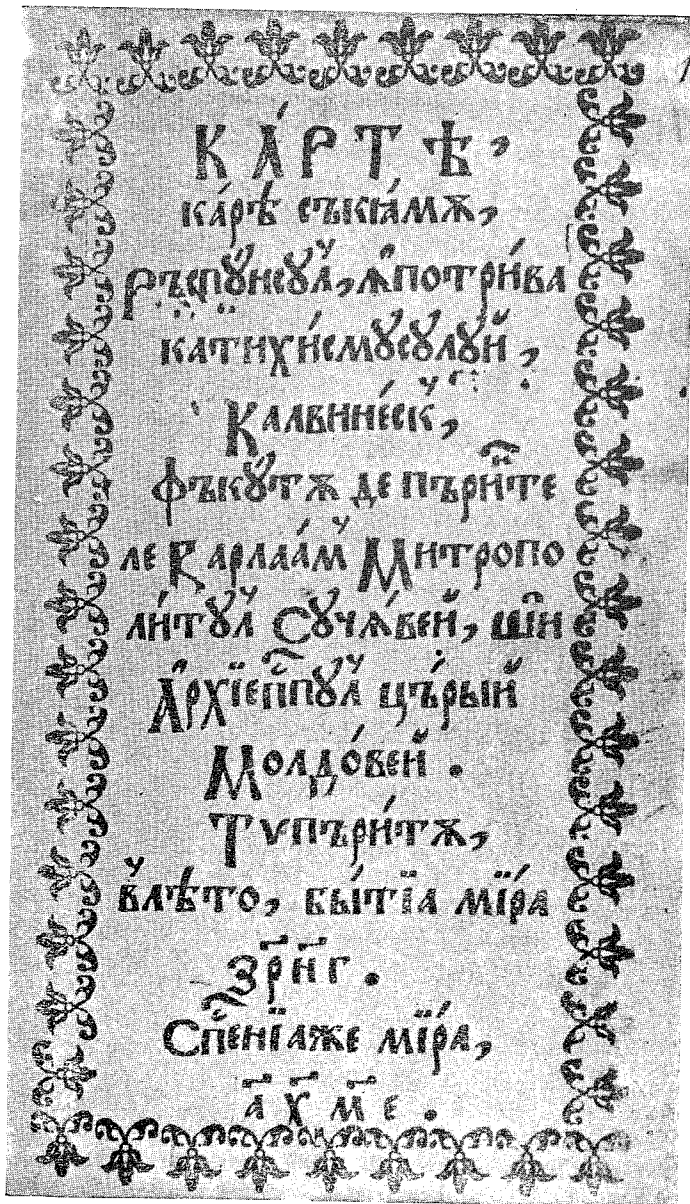 КА́РТѢ,
ка́рѣ съкѩ́мѫ,
Ръспꙋ́нсꙋл҆, ꙟ҆потри́ва
кати́хи́смꙋсꙋлꙋй,
Калвине́ск,
фъкꙋ́тѫ де пърѝ́те
ле Варлаа́м Митропо
ли́тꙋл Сꙋчѧ́вей, шѝ
А҆рхїепⷭ҇пꙋл цъ́рый
Молдо́вей.
Тѵпъри́тѫ,
в лѣ́то, бы́тїа мі́ра
зрн҃г.
Сп҃енїаже мі́ра,
а҃хм҃е.